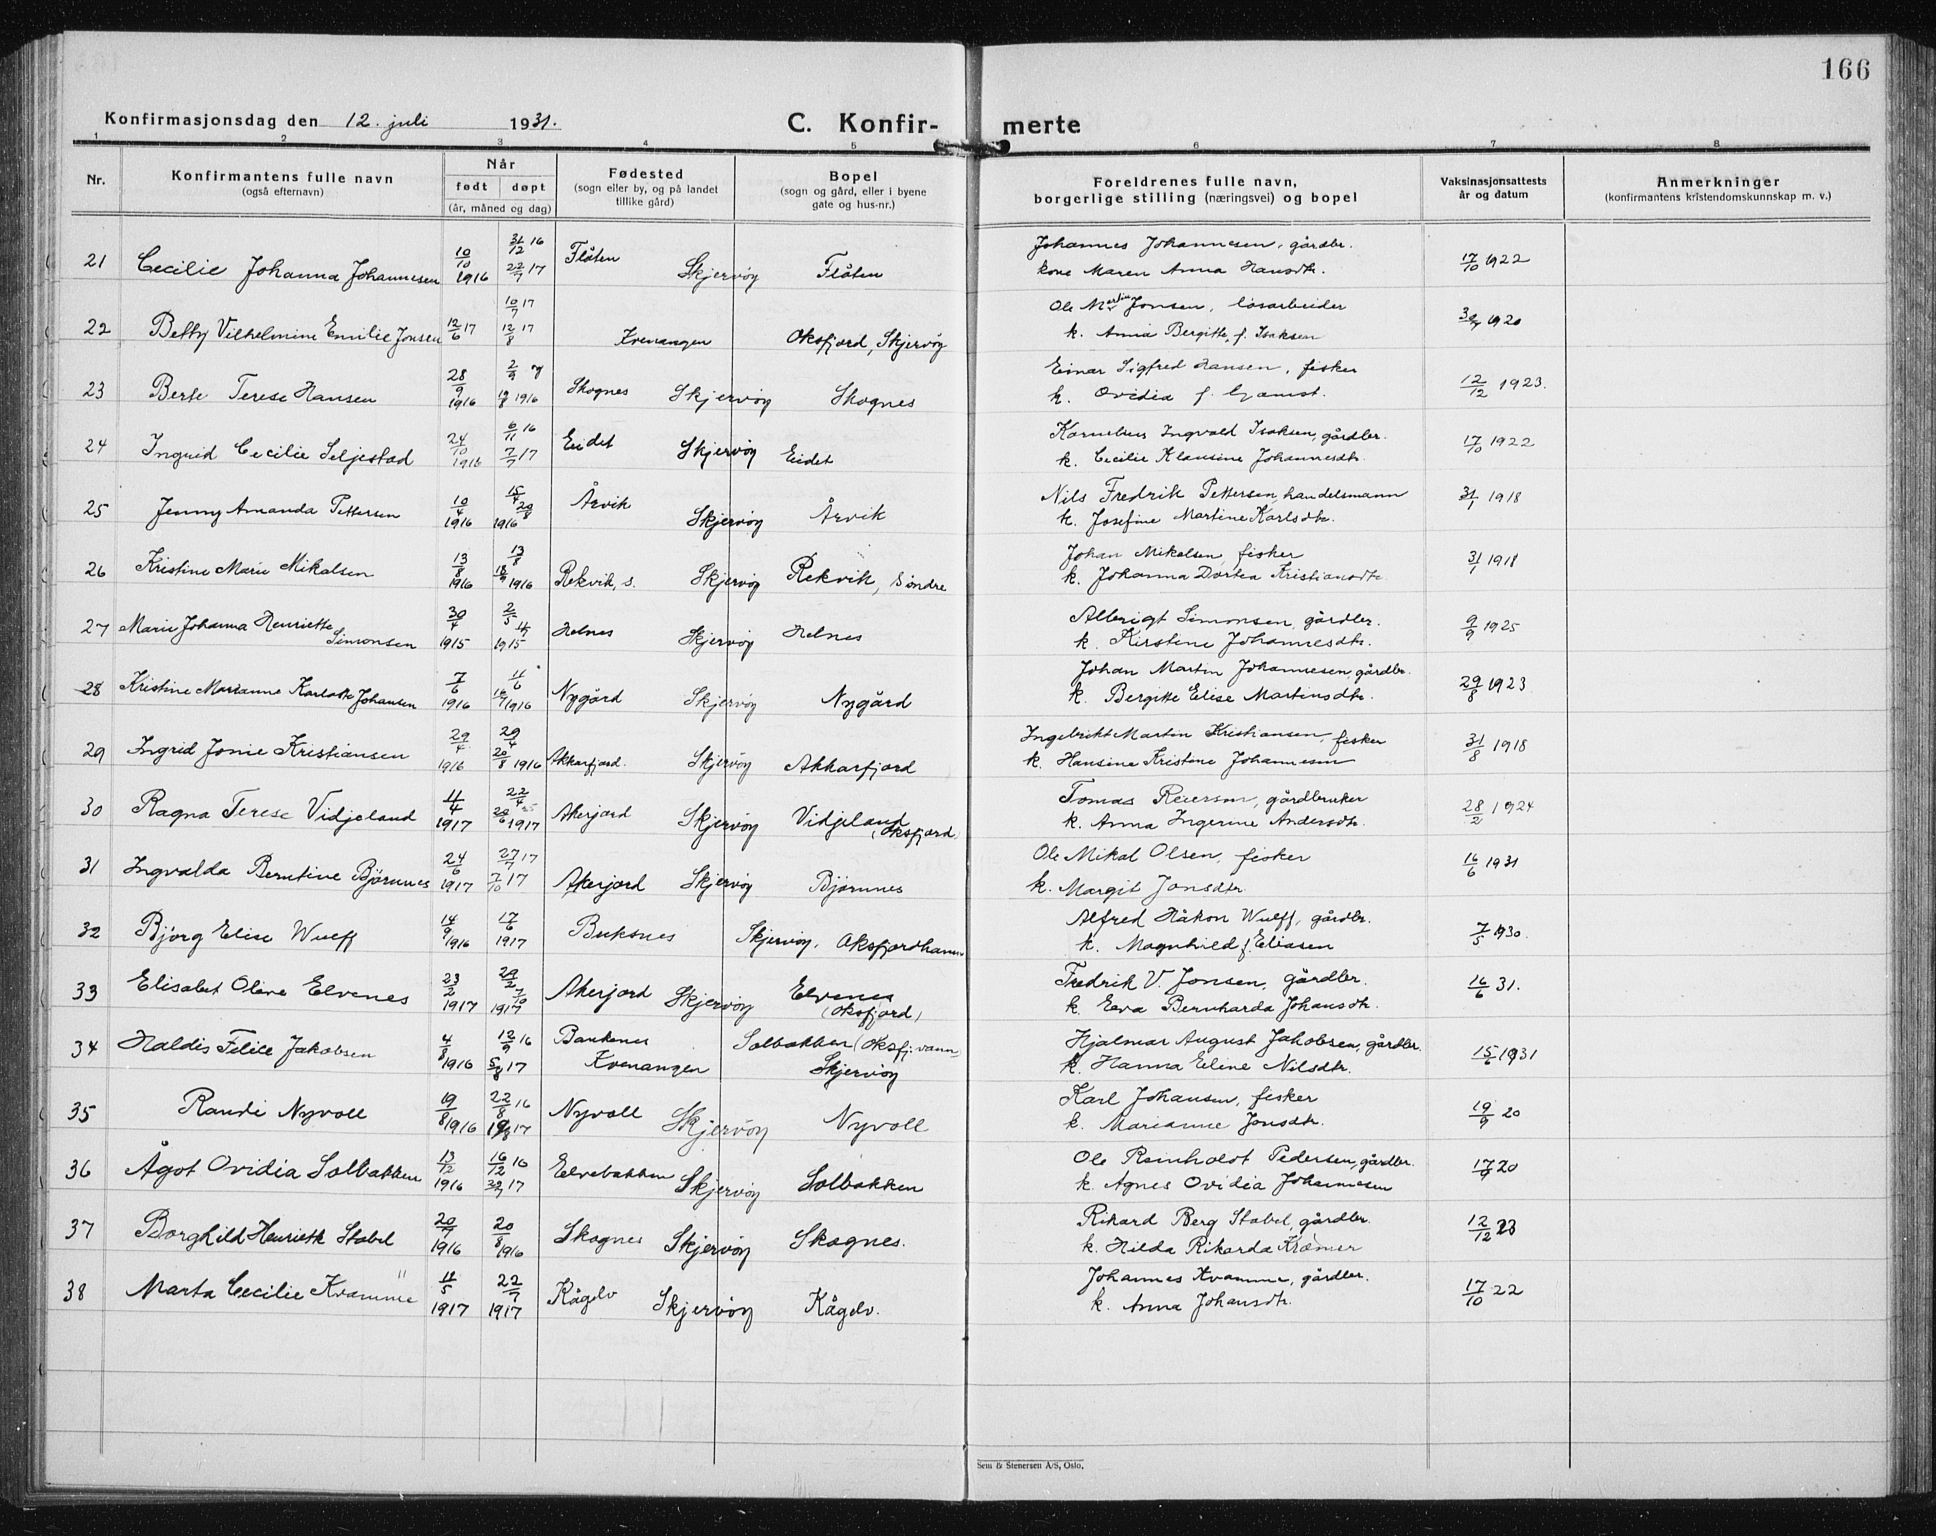 166
Konfirmasjonsdag den 12. juli 1931. C. Konfir- merte
1 2 3 4 5 6 7 8
Nr. Konfirmantens fulle navn (også efternavn) Når født døpt (år, måned og dag) Fødested (sogn eller by, og på landet tillike gård) Bopel (sogn og gård, eller i byene gate og hus-nr.) Foreldrenes fulle navn, borgerlige stilling (næringsvei) og bopel Vaksinasjonsattests år og datum Anmerkninger (konfirmantens kristendomskunnskap m. v.)
21 Cecilie Johanna Johannesen 10/10 1916 31/12 16 22/7 17 Flåten Skjervøy Flåten Johannes Johannesen, gårdbr. kone Maren Anna Hansdtr. 17/10 1922
22 Betty Vilhelmine Emilie Jonsen 12/6 17 10/7 17 12/8 17 Kvenangen Oksfjord, Skjervøy Ole Martin Jonsen, løsarbeider k. Anna Bergitte, f. Isaksen 1920
23 Berte Terese Hansen 28/9 1916 Skognes Skjervøy Skognes Einar Sigfred Hansen, fisker k. Ovidia f. Gamst. 12/12 1923.
24 Ingrid Cecilie Seljestad 24/10 1916 6/11 16 7/7 17 Eidet Skjervøy Eidet Kornelius Ingvald Isaksen, gårdbr. k. Cecilie Klausine Johannesdtr. 17/10 1922
25 Jenny Amanda Pettersen 10/4 1916 15/4 20/8 1916 Årvik Skjervøy Årvik Nils Fredrik Pettersen, handelsmann k. Josefine Martine Karlsdtr. 31/1 1918
26 Kristine Marie Mikalsen 13/8 1916 13/8 18/9 1916 Rekvik, s. Skjervøy Rekvik, Søndre Johan Mikalsen, fisker k. Johanna Dortea Kristiansdtr. 31/1 1918
27 Marie Johanna Henriette Simonsen 30/4 1915 2/5 1915 Helnes Skjervøy Helnes Albrigt Simonsen, gårdbr. k. Kirstine Johannesdtr. 9/9 1925
28 Kristine Marianne Karlotte Johansen 7/6 1916 11/6 16/7 1916 Nygård Skjervøy Nygård Johan Martin Johannesen, gårdbr. k. Bergitte Elise Martinsdtr. 29/8 1923
29 Ingrid Jonie Kristiansen 29/4 1916 29/4 20/8 1916 Akkarfjord Skjervøy Akkarfjord Ingebrikt Martin Kristiansen, fisker k. Hansine Kristine Johannesen 31/8 1918
30 Ragna Terese Vidjeland 11/4 1917 22/4 1917 Akerjord Skjervøy Vidjeland (Oksfjord) Tomas Reiersen, gårdbruker k. Anna Ingerine Andersdtr. 28/2 1924
31 Ingvalda Berntine Bjørnnes 24/6 1917 27/7 17 7/10 17 Akerjord Skjervøy Bjørnnes Ole Mikal Olsen, fisker k. Margit Jonsdtr. 16/6 1931
32 Bjørg Elise Wulff 14/9 1916 17/6 1917 Buksnes Skjervøy, Oksfjordhamn Alfred Håkon Wulff, gårdbr. k. Magnhild f. Eliasen 7/5 1930.
33 Elisabet Oline Elvenes 23/2 1917 7/10 1917 Akerjord Skjervøy Elvenes (Oksfjord) Fredrik V. Jonsen, gårdbr. k. Eva Bernharda Johansdtr. 16/6 31.
34 Haldis Felice Jakobsen 4/8 1916 12/9 16 5/8 17 Kvenangen Solbakken (Oksfj.vann Skjervøy Hjalmar August Jakobsen, gårdbr. k. Hanna Eline Nilsdtr. 15/6 1931
35 Randi Nyvoll 19/8 1916 22/8 16 17 Nyvoll Skjervøy Nyvoll Karl Johansen, fisker k. Marianne Jonsdtr. 19/9 20
36 Ågot Ovidia Solbakken 13/12 1916 16/12 16 17 Elvebakken Skjervøy Solbakken Ole Reinholdt Pedersen, gårdbr. k. Agnes Ovidia Johannesen 20
37 Borghild Henriette Stabel 20/7 1916 20/8 1916 Skognes Skjervøy Skognes. Rikard Berg Stabel, gårdbr. k. Hilda Rikarda Kræmer 12/12 23
38 Marta Cecilie Kvamme 11/5 1917 22/7 1917 Kågelv Skjervøy Kågelv. Johannes Kvamme, gårdbr. k. Anna Johansdtr. 17/10 22
Sem & Stenersen A/S, Oslo.